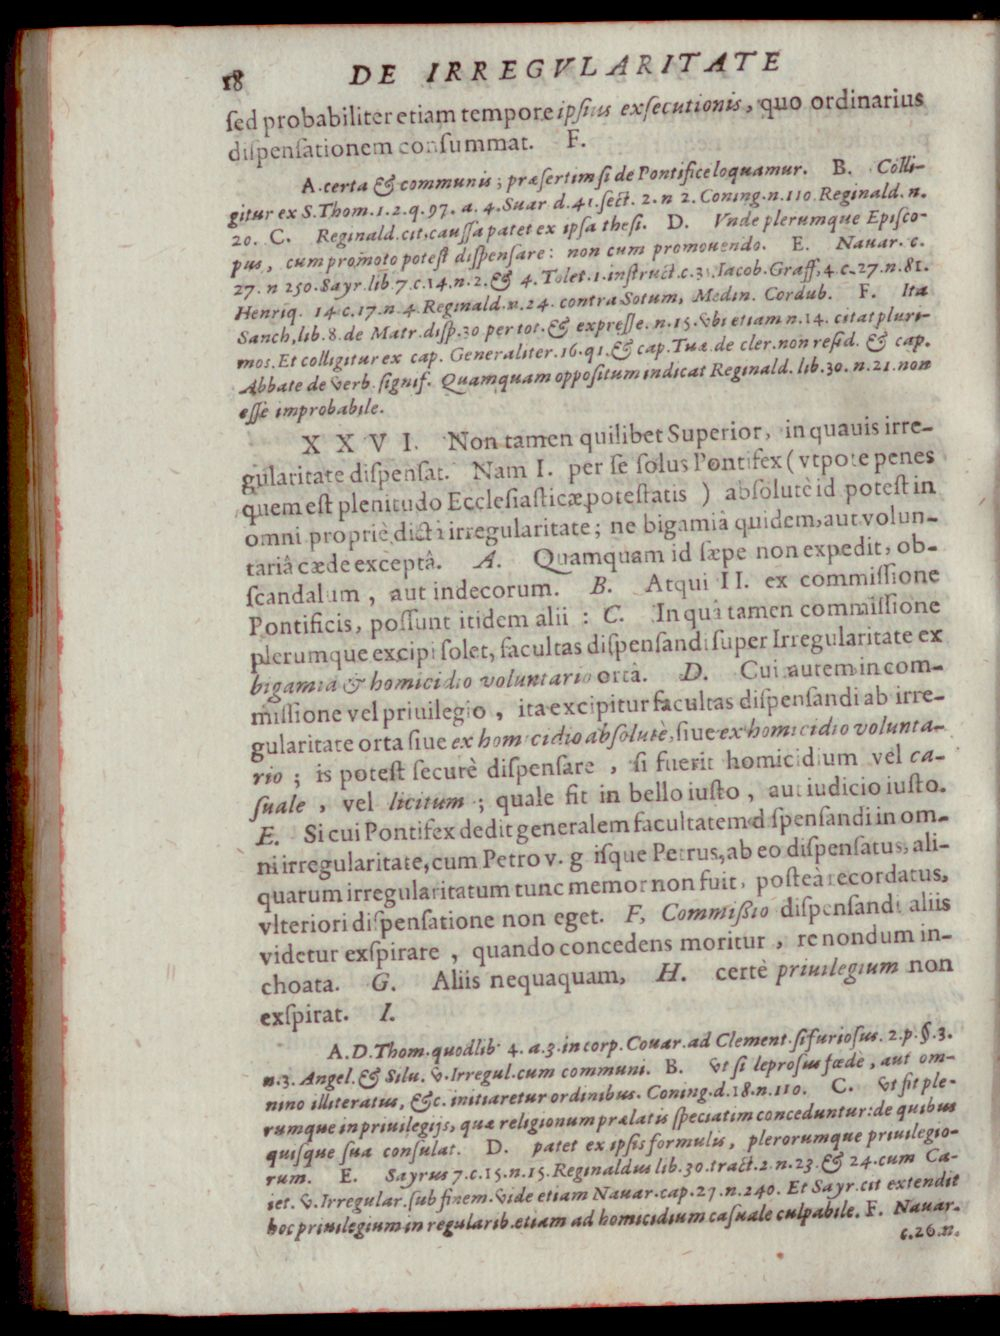 18 DE IRREGVLARITATE
sed probabiliter etiam tempore ipsius exsecutionis, quo ordinarius
dispensationem consummat. F.
A. certa & communis; præsertim si de Pontifice loquamur. B. Colli-
gitur ex S. Thom. 1. 2. q. 97. a. 4. Suar d. 41. sect. 2. n 2. Coning. n. 110 Reginald. n.
20. C. Reginald. cit, caussa patet ex ipsa thesi. D. Vnde plerumque Episco-
pus, cum promoto potest dispensare: non cum promouendo. E. Nauar. c.
27. n 250. Sayr. lib. 7. c. 14. n. 2. & 4. Tolet. 1. instruct. c. 3. Iacob. Graff, 4. c. 27. n. 81.
Henriq. 14. c. 17. n. 4. Reginald. n. 24. contra Sotum, Medin. Cordub. F. Ita
Sanch, lib. 8. de Matr. disp. 30 per tot. & expresse. n. 15. vbi etiam n. 14. citat pluri-
mos. Et colligitur ex cap. Generaliter. 16. q1. & cap. Tuæ de cler. non resid. & cap.
Abbate de verb. signif. Quamquam oppositum indicat Reginald. lib. 30. n. 21. non
esse improbabile.
XXVI. Non tamen quilibet Superior, in quauis irre-
gularitate dispensat. Nam I. per se solus Pontifex (vtpote penes
quem est plenitudo Ecclesiasticæ potestatis) absolutè id potest in
omni propriè dictâ irregularitate; ne bigamiâ quidem, aut volun-
tariâ cæde exceptâ. A. Quamquam id sæpe non expedit, ob-
scandalum, aut indecorum. B. Atqui II. ex commissione
Pontificis, possunt itidem alii: C. In quâ tamen commissione
plerumque excipi solet, facultas dispensandi super Irregularitate ex
bigamia & homicidio voluntario ortâ. D. Cui autem in com-
missione vel priuilegio, ita excipitur facultas dispensandi ab irre-
gularitate orta siue ex homicidio absolutè, siue ex homicidio volunta-
rio; is potest securè dispensare, si fuerit homicidium vel ca-
suale, vel licitum; quale fit in bello iusto, aut iudicio iusto.
E. Si cui Pontifex dedit generalem facultatem d spensandi in om-
ni irregularitate, cum Petro v. g isque Petrus, ab eo dispensatus, ali-
quarum irregularitatum tunc memor non fuit, posteà recordatus,
vlteriori dispensatione non eget. F, Commißio dispensandi aliis
videtur exspirare, quando concedens moritur, re nondum in-
choata. G. Aliis nequaquam, H. certè priuilegium non
exspirat. I.
A. D. Thom. quodlib 4. a. 3. in corp. Couar. ad Clement. si furiosus. 2. p. §. 3.
n. 3. Angel. & Silu. v. Irregul. cum communi. B. vt si leprosus fœdè, aut om-
nino illiteratus, &c. initiaretur ordinibus. Coning. d. 18. n. 110. C. vt fit ple-
rumque in priuilegijs, quæ religionum prælatis speciatim conceduntur: de quibus
quisque sua consulat. D. patet ex ipsis formulis, plerorumque priuilegio-
rum. E. Sayrus 7. c. 15. n. 15. Reginaldus lib. 30. tract. 2. n. 23. & 24. cum Ca-
iet. v. Irregular. sub finem. vide etiam Nauar. cap. 27. n. 240. Et Sayr. cit extendit
hoc priuilegium in regularib. etiam ad homicidium casuale culpabile. F. Nauar.
c. 26. n.